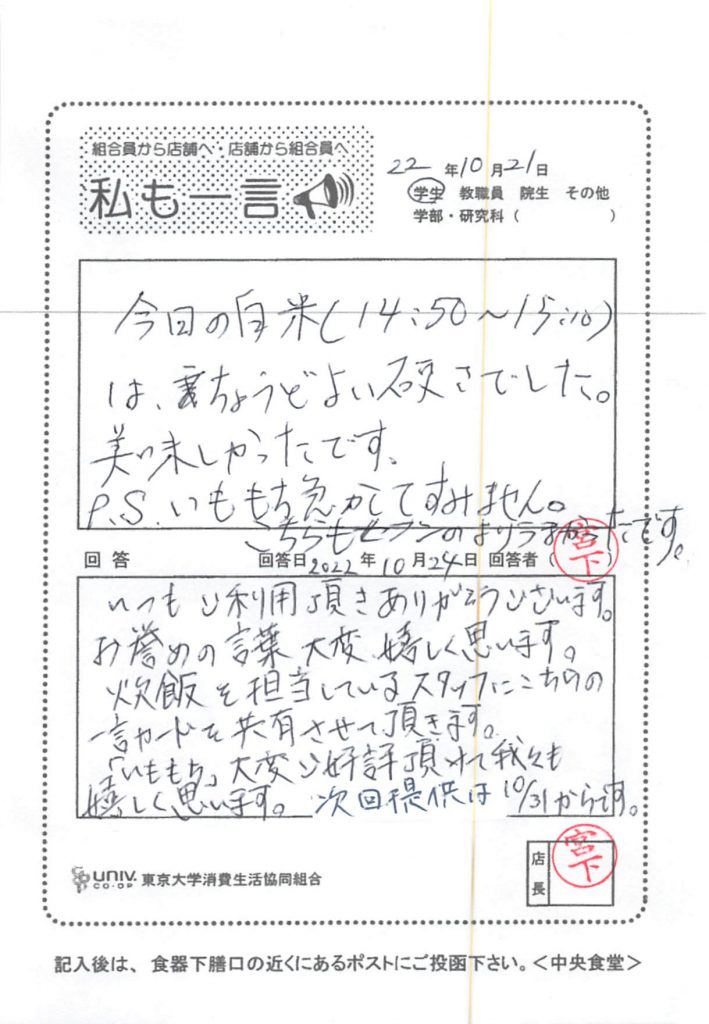 組合員から店舗へ・店舗から組合員へ
私も一言
22年10月21日
学生 教職員 院生 その他
学部・研究科( )
今日の白米(14:50～15:10)
は、ちょうどよい硬さでした。
美味しかったです。
P.S. いももち急かしてすみません。
こちらもセブンのよりうまかったです。
回答 回答日2022年10月24日 回答者(宮下)
いつもご利用頂きありがとうございます。
お誉めの言葉大変嬉しく思います。
炊飯を担当しているスタッフにこちらの
一言カードを共有させて頂きます。
「いももち」大変ご好評頂けて我々も
嬉しく思います。次回提供は10/31からです。
店長 宮下
UNIV. CO-OP 東京大学消費生活協同組合
記入後は、食器下膳口の近くにあるポストにご投函下さい。＜中央食堂＞